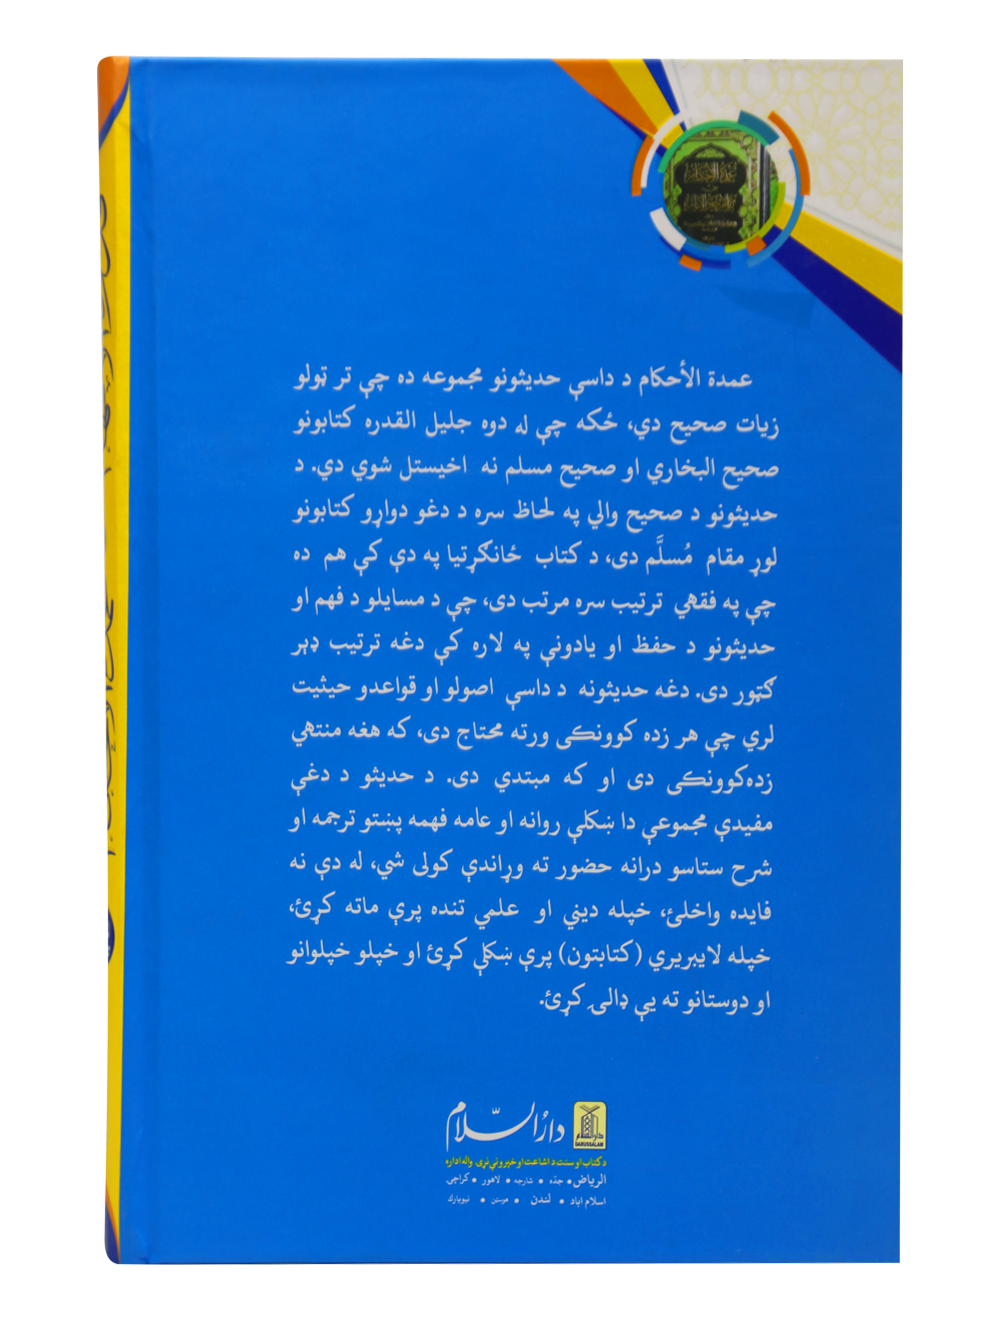 عمدة الأحكام د داسې حديثونو مجموعه ده چې تر ټولو
زيات صحيح دي، ځکه چې له دوه جليل القدره کتابونو
صحيح البخاري او صحيح مسلم نه اخيستل شوي دي. د
حديثونو د صحيح والي په لحاظ سره د دغو دواړو کتابونو
لوړ مقام مُسلَّم دی، د کتاب ځانګړتيا په دې کې هم ده
چې په فقهي ترتيب سره مرتب دی، چې د مسايلو د فهم او
حديثونو د حفظ او يادونې په لاره کې دغه ترتيب ډېر
ګټور دی. دغه حديثونه د داسې اصولو او قواعدو حيثيت
لري چې هر زده کوونکی ورته محتاج دی، که هغه منتهي
زده‌کوونکی دی او که مبتدي دی. د حديثو د دغې
مفيدې مجموعې دا ښکلې روانه او عامه فهمه پښتو ترجمه او
شرح ستاسو درانه حضور ته وړاندې کولی شي، له دې نه
فايده واخلئ، خپله ديني او علمي تنده پرې ماته کړئ،
خپله لايبريري (کتابتون) پرې ښکلې کړئ او خپلو خپلوانو
او دوستانو ته يې ډالۍ کړئ.
دارُالسّلام
DARUSSALAM
د کتاب او سنت د اشاعت او خپرونې نړۍ واله اداره
الرياض • جدّه • شارجه • لاهور • کراچۍ
اسلام اباد • لندن • هوسټن • نيويارک